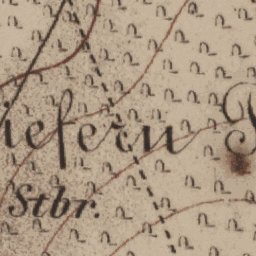 iefern
Stbr.